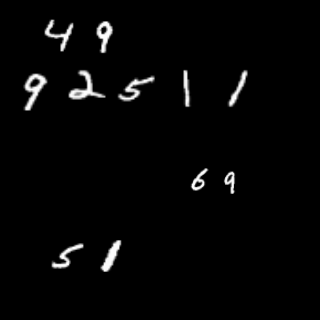 4 9
9 2 5 1 1
6 9
5 1